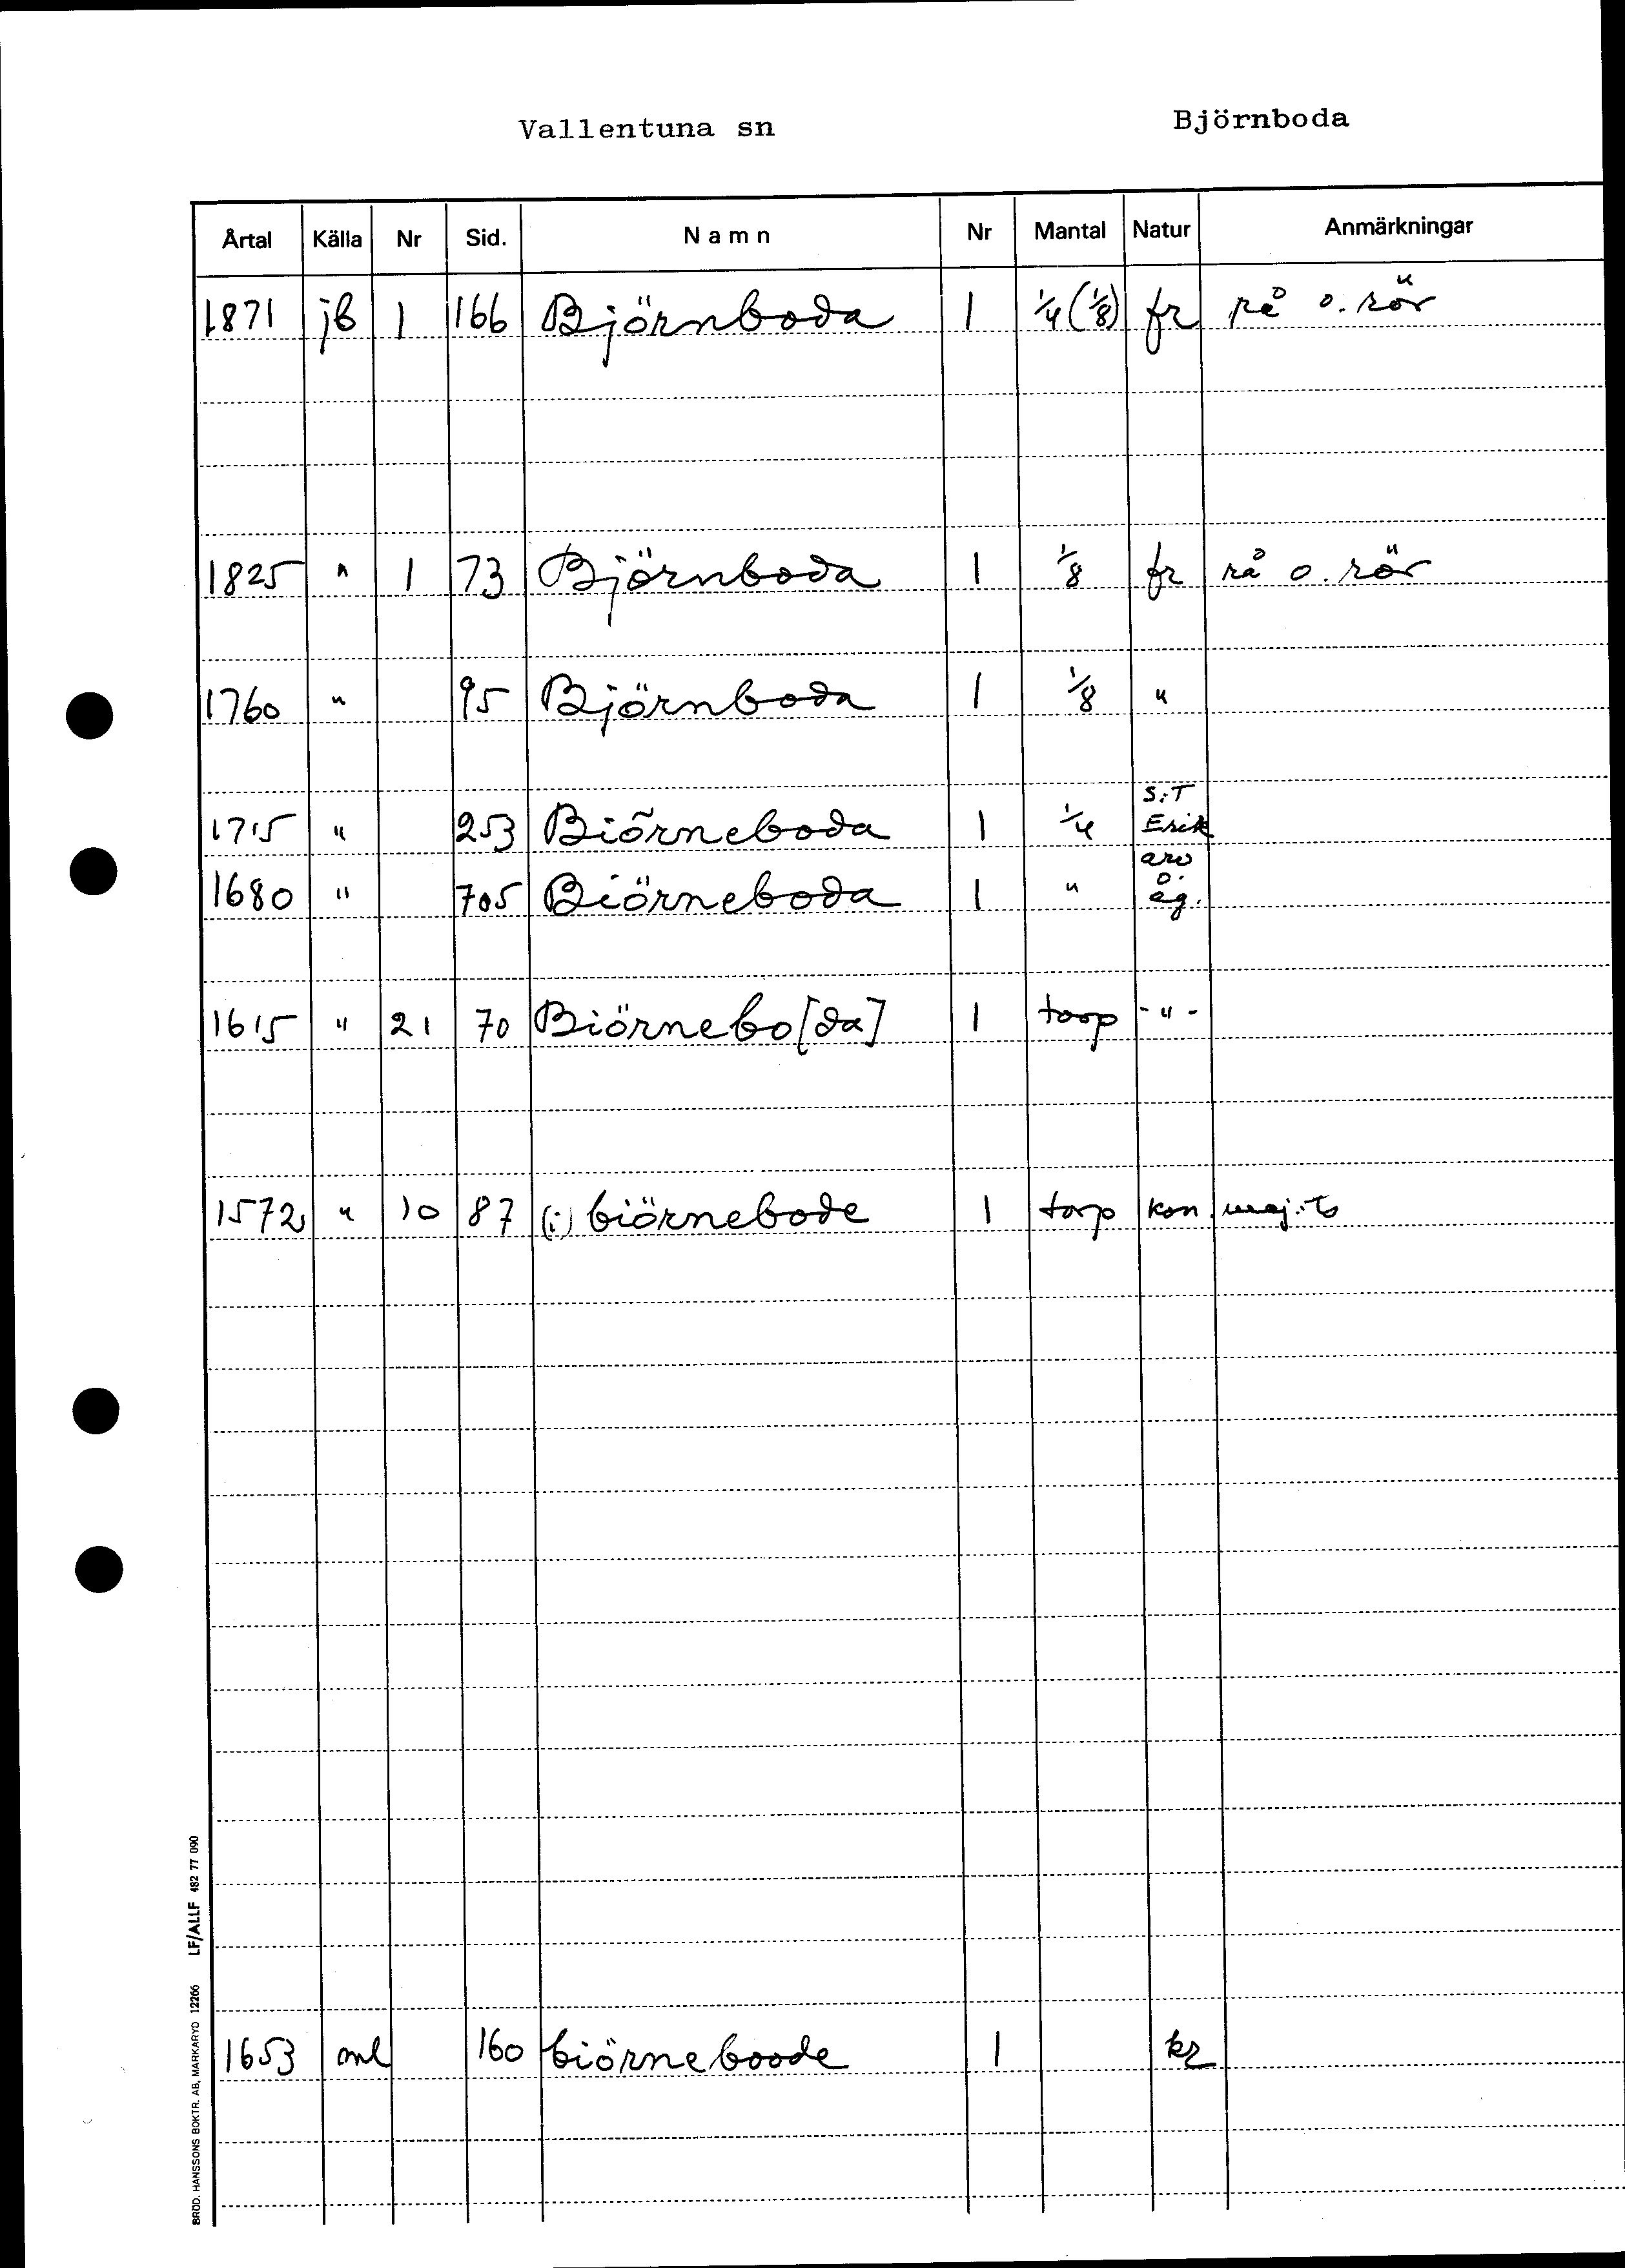 Vallentuna sn Björnboda
Årtal Källa Nr Sid. Namn Nr Mantal Natur Anmärkningar
1871 jb 1 166 Björnboda 1 1/4 (1/8) fr rå o. rör
1825 " 1 73 Björnboda 1 1/8 fr rå o. rör
1760 " 95 Björnboda 1 1/8 "
S:T
1715 " 253 Biörneboda 1 1/4 Erik
arv
o.
1680 " 705 Biörneboda 1 " äg.
1615 " 21 70 Biörnebo[da] 1 torp -"-
1572 " 10 87 (i) biörnebode 1 torp kon. maj:ts
1653 ml 160 biörneboode 1 kr
BRÖD. HANSSONS BOKTR. AB, MARKARYD 12266 LF/ALLF 482 77 090